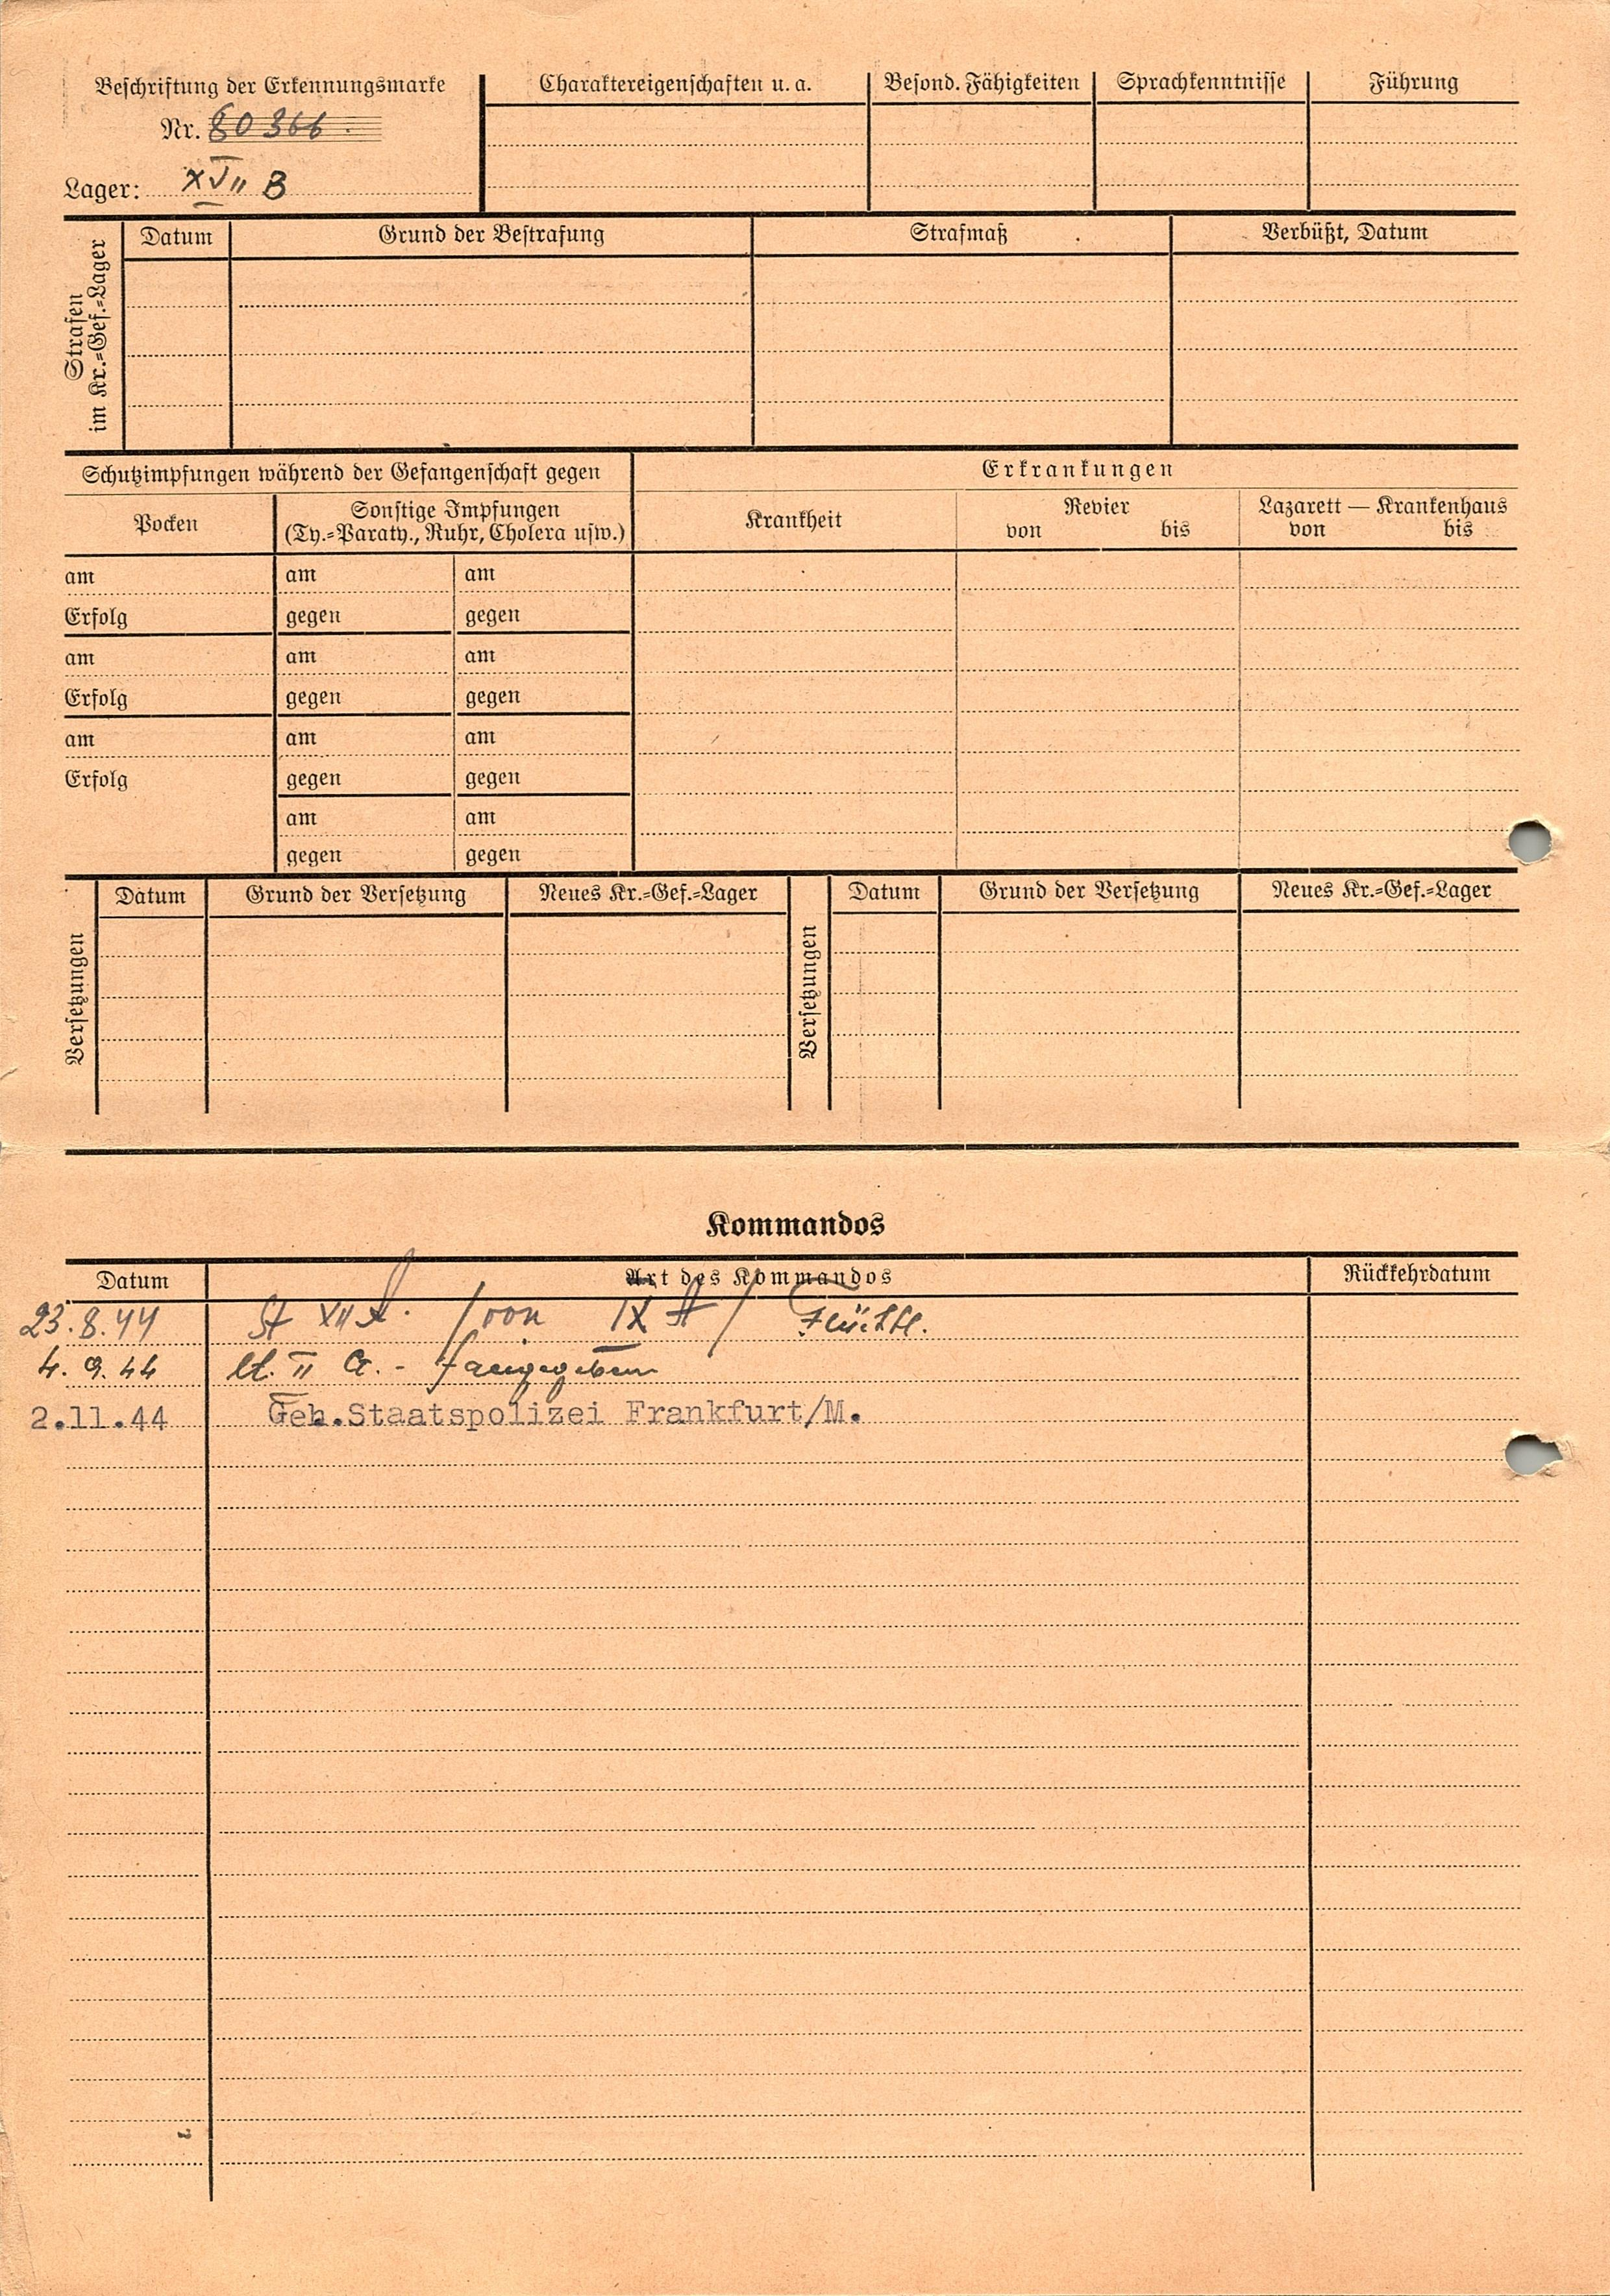 Beschriftung der Erkennungsmarke
Nr. 80366.
Lager: XVII B
Charaktereigenschaften u. a.
Besond. Fähigkeiten
Sprachkenntnisse
Führung
Strafen
im Kr.=Gef.=Lager
Datum
Grund der Bestrafung
Strafmaß
Verbüßt, Datum
Schutzimpfungen während der Gefangenschaft gegen
Erkrankungen
Pocken
Sonstige Impfungen
(Ty.=Paraty., Ruhr, Cholera usw.)
Krankheit
Revier
von bis
Lazarett — Krankenhaus
von bis
am am am
Erfolg gegen gegen
am am am
Erfolg gegen gegen
am am am
Erfolg gegen gegen
am am
gegen gegen
Versetzungen
Datum
Grund der Versetzung
Neues Kr.=Gef.=Lager
Versetzungen
Datum
Grund der Versetzung
Neues Kr.=Gef.=Lager
Kommandos
Datum
Art des Kommandos
Rückkehrdatum
23.8.44 St XII A. /von IX A/
4.9.44 lt. II
2.11.44 Geh.Staatspolizei Frankfurt/M.